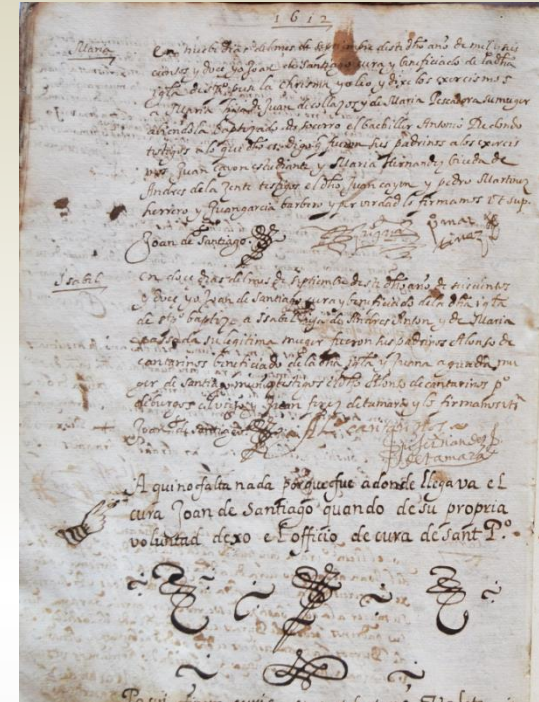 1612
Maria
En nuebe dias del mes de septiembre deste dho año de mil y seis
cientos y doce yo Joan de Santiago cura y beneficiado de la dha
iglª de stº pº puse la chrisma y olio y dixe los exorcismos
a Maria hija de Juan de collazos y de Maria Pescadora su muger
abiendola baptizado de socorro el bachiller Antonio Redondo
testigos a lo que dho es digo q fueron sus padrinos a los exorcis
mos Juan cayon estudiante y Maria Hernandez biuda de
Andres de la testigos el dho Juan cayon y pedro Martinez
herrero y Juan garcia barbero y por verdad lo firmamos ut sup.
Joan de Santiago
Isabel
en doce dias del mes de septiembre deste dho año de seiscientos
y doce yo Joan de Santiago cura y beneficiado de la dha iglª
de stº pº baptize a Isabel hija de Andres Anton y de Maria
su legitima muger fueron sus padrinos Alonso de
cantarinos beneficiado de la dha iglª y Juana aguado mu
ger de Santiago testigos el dho Alonso de cantarinos pº
de burgos el viejo y Juan de tamara y lo firmamos
Joan de Santiago
Hernandez
de tamara
Aqui no falta nada porque fue adonde llegava el
cura Joan de Santiago quando de su propria
voluntad dexo el officio de cura de Sant Pº